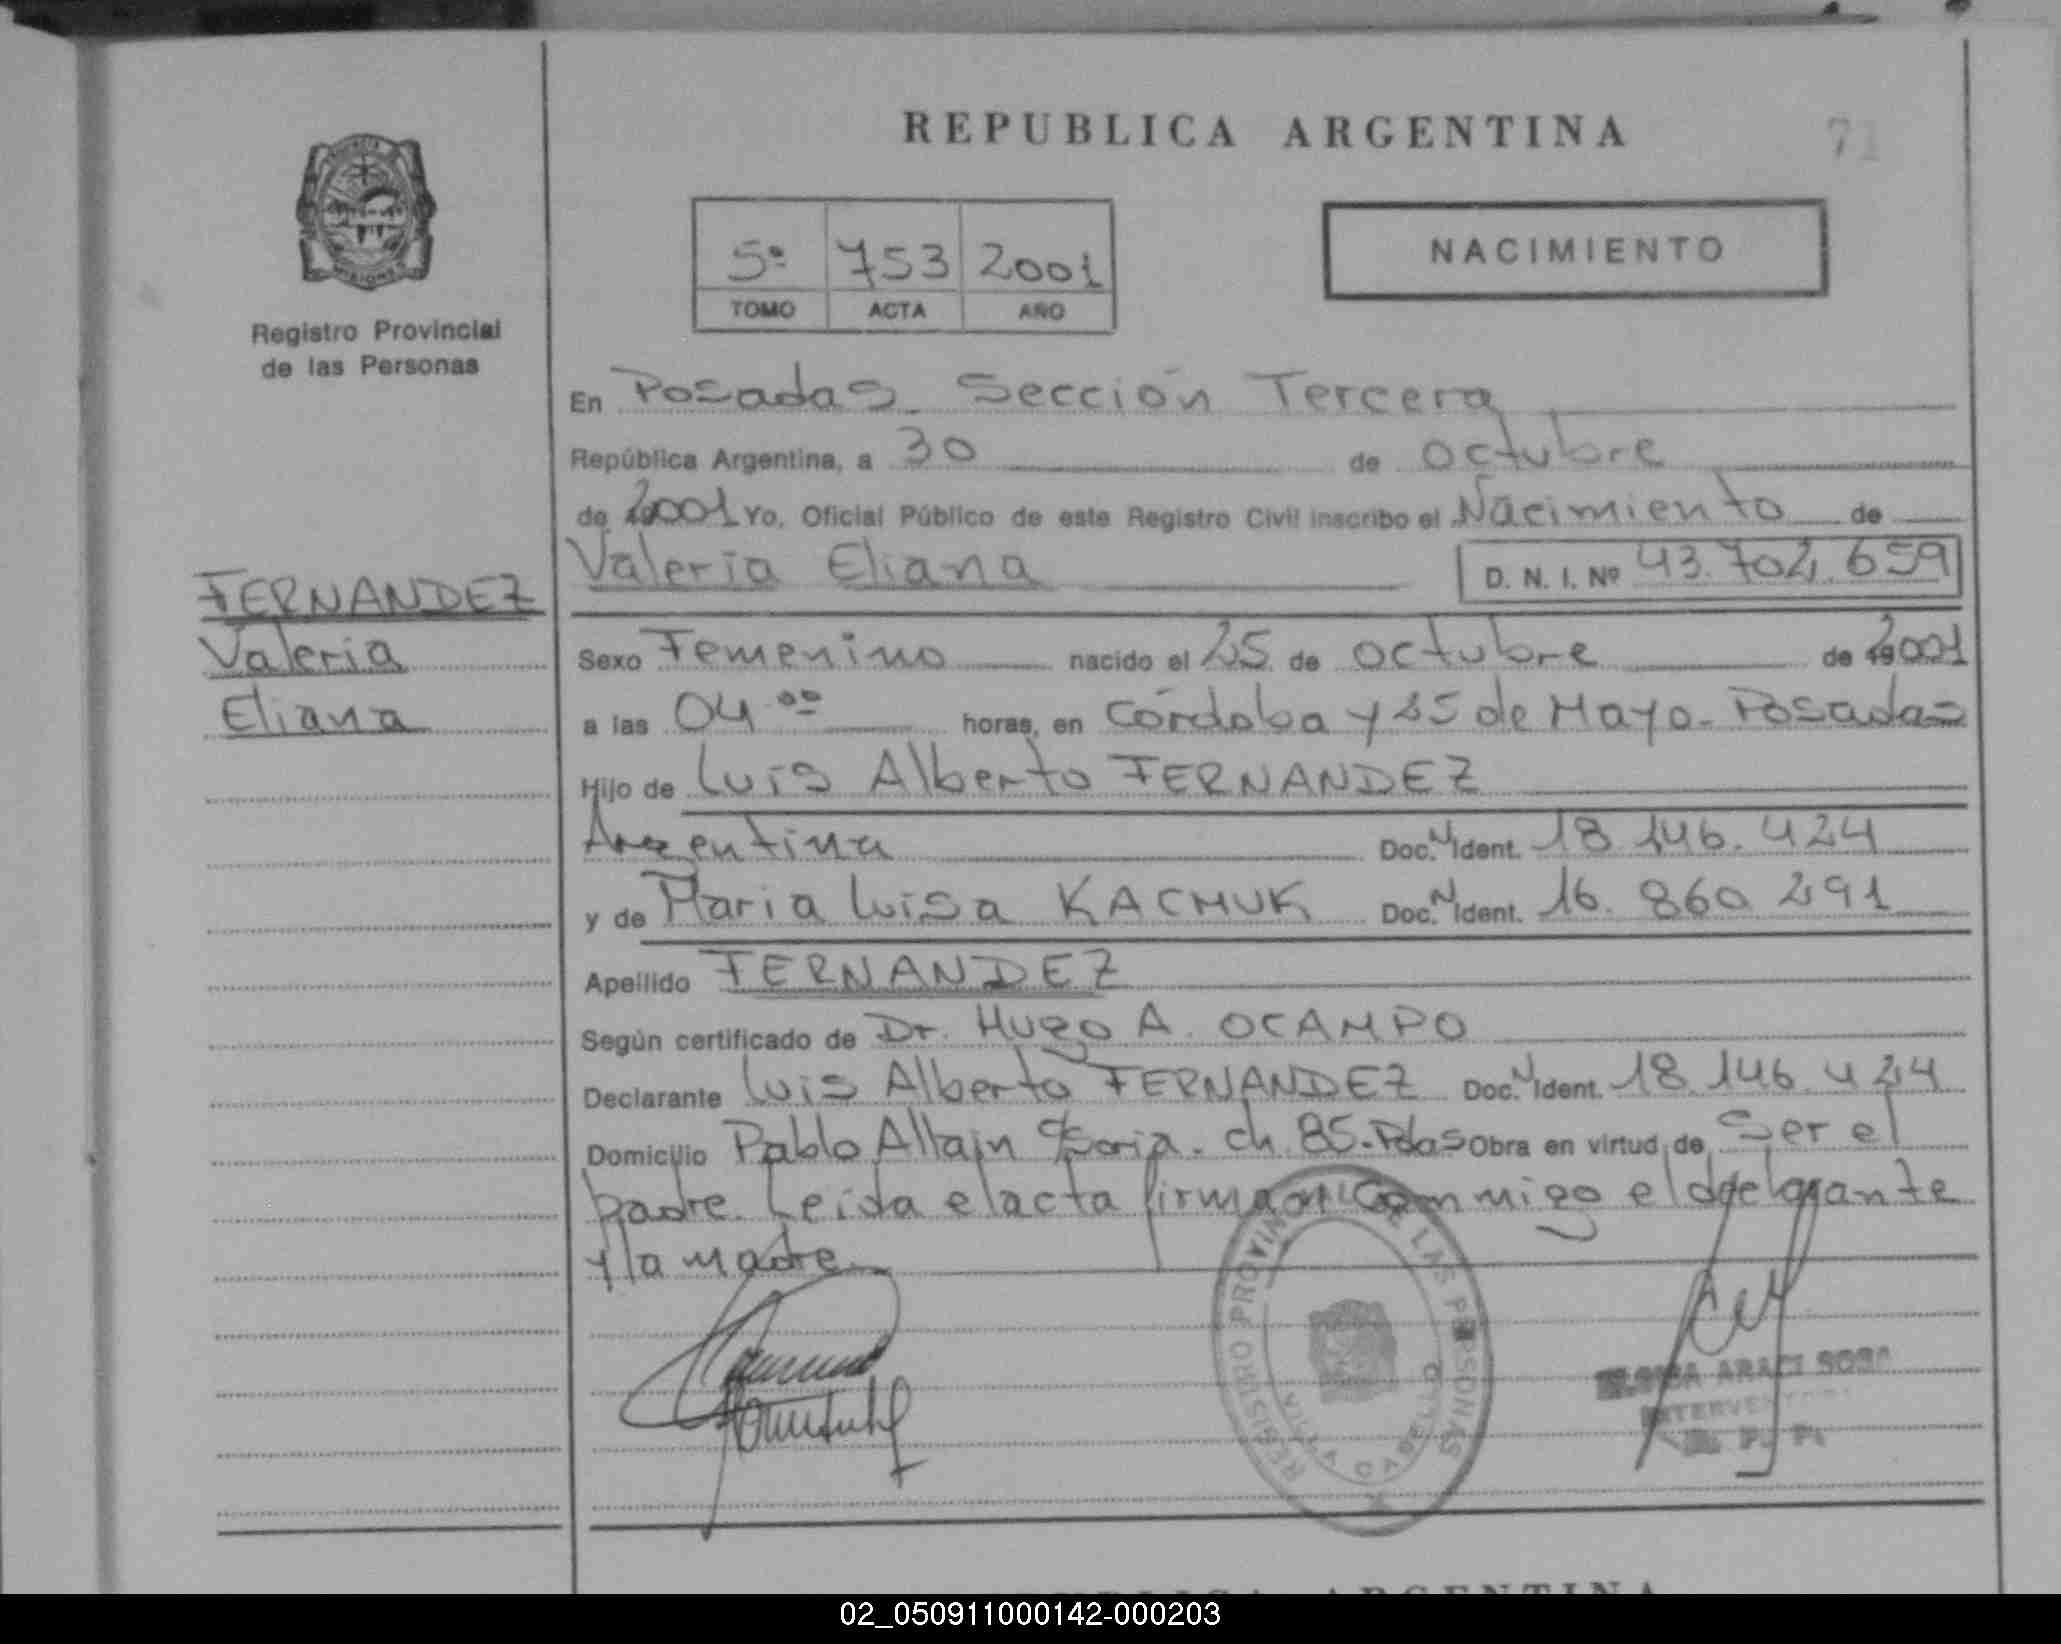 REPUBLICA ARGENTINA
71
Registro Provincial
de las Personas
5º 753 2001
TOMO ACTA AÑO
NACIMIENTO
En Posadas. Sección Tercera
República Argentina, a 30 de Octubre
de 2001 Yo, Oficial Público de este Registro Civil inscribo el Nacimiento de
Valeria Eliana D. N. I. Nº 43.704.659
FERNANDEZ
Valeria
Eliana
Sexo Femenino nacido el 25 de octubre de 2001
a las 04 ºº horas, en Córdoba y 25 de Mayo. Posadas
Hijo de Luis Alberto FERNANDEZ
Argentina Doc. N Ident. 18.146.424
y de Maria Luisa KACHUK Doc. N Ident. 16.860.291
Apellido FERNANDEZ
Según certificado de Dr. Hugo A. OCAMPO
Declarante Luis Alberto FERNANDEZ Doc. N Ident. 18.146.424
Domicilio Pablo Allain ch. 85. Pdas Obra en virtud de Ser el
padre. Leida el acta firman conmigo el
y la madre.
REGISTRO PROVINCIAL DE LAS PERSONAS
VILLA CABELLO
ARACI SOSA
R. P. P.
REPUBLICA ARGENTINA
02_050911000142-000203